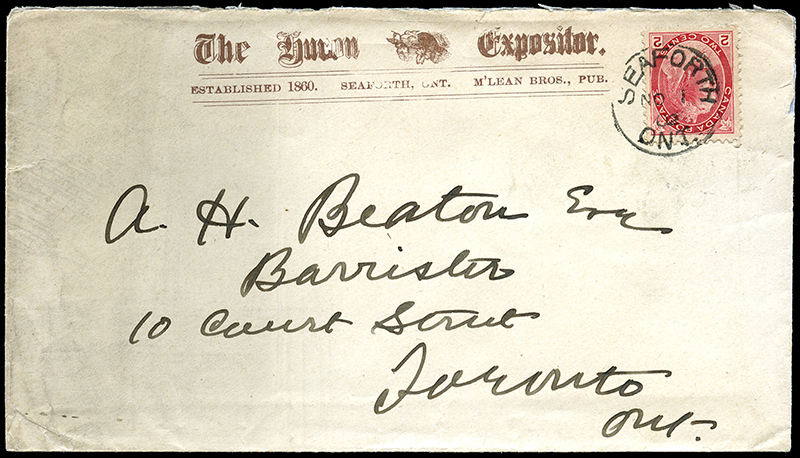 The Huron Expositor.
ESTABLISHED 1860. SEAFORTH, ONT. M'LEAN BROS., PUB.
2 TWO CENTS 2
CANADA POSTAGE
SEAFORTH
NO 1
ONT.
A. H. Beaton Esq
Barrister
10 Court Street
Toronto
Ont.